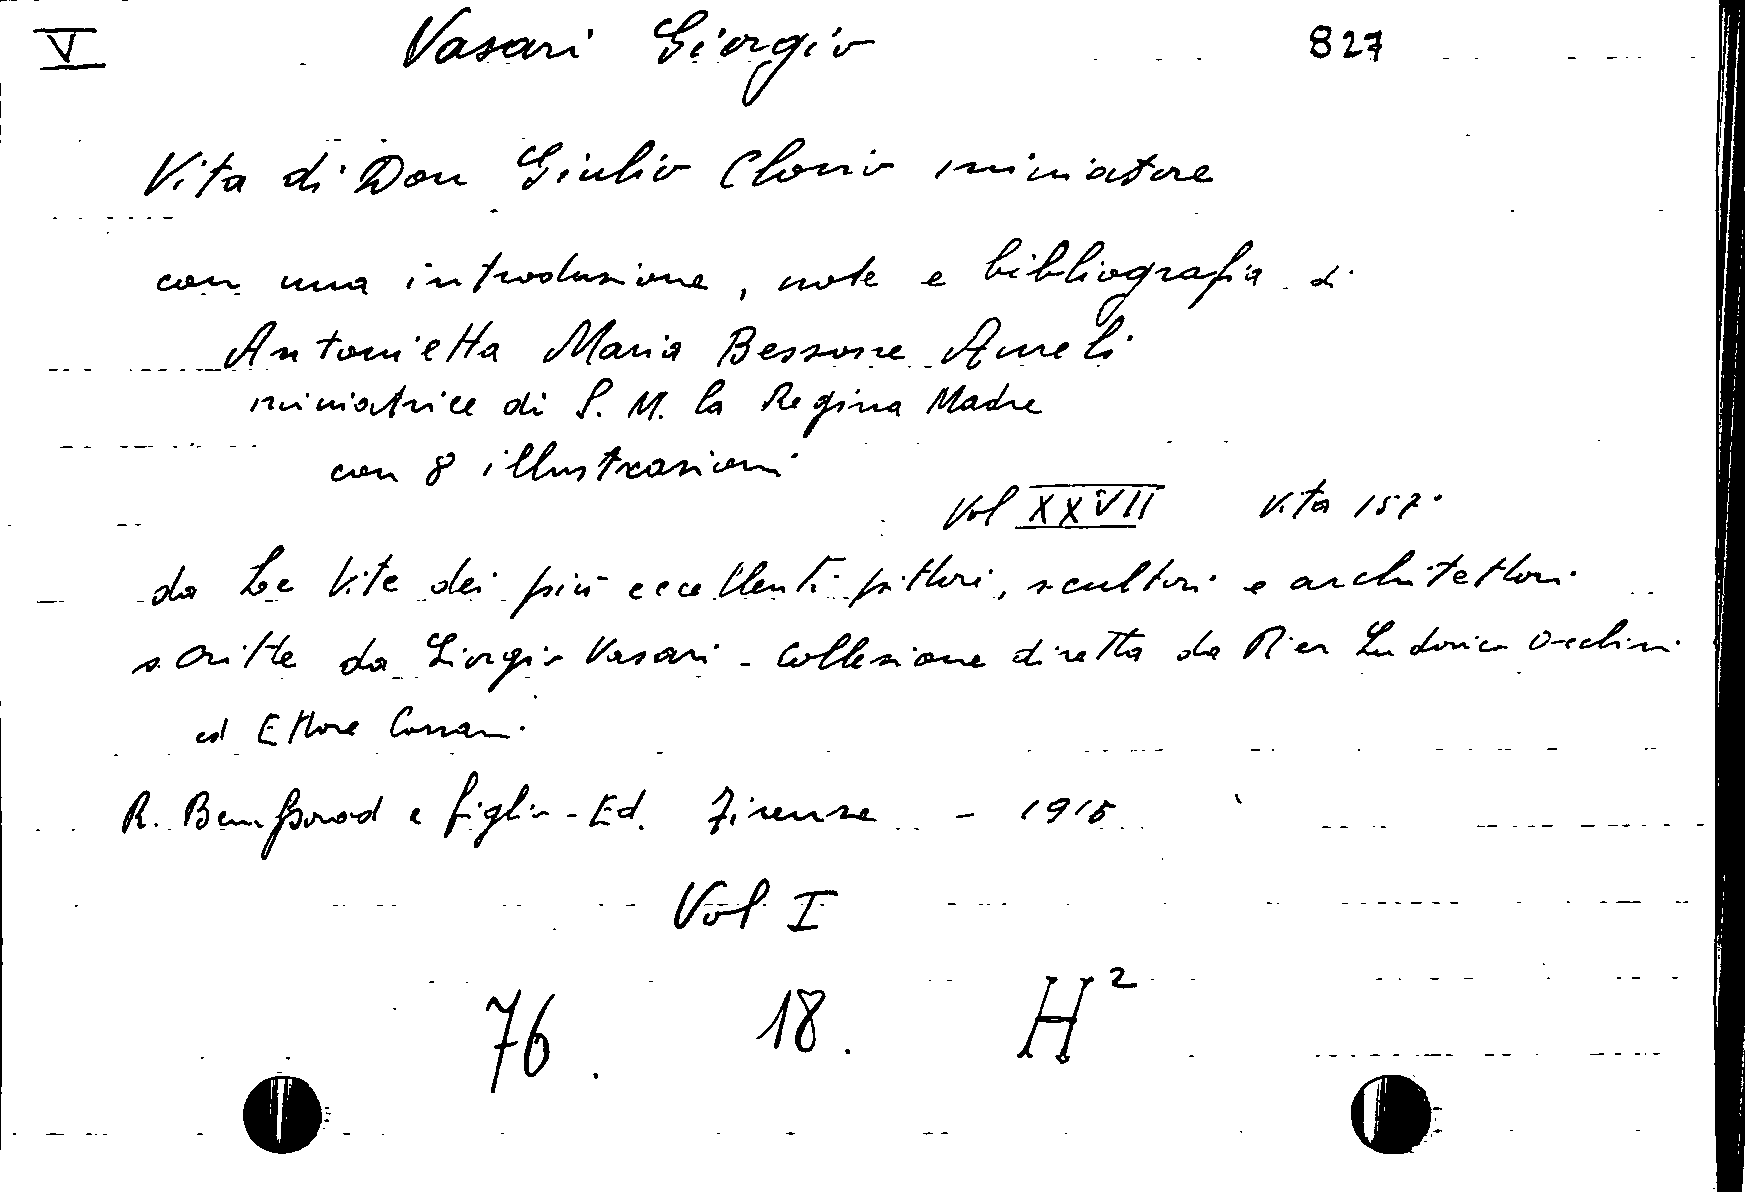 V Vasari Giorgio 827
Vita di Don Giulio Clovio miniatore
con una introduzione, note e bibliografia di
Antonietta Maria Bessone Aureli
miniatrice di S. M. la Regina Madre
con 8 illustrazioni
Vol XXVII Vita 157°
da Le Vite dei più eccellenti pittori, scultori e architettori
scritte da Giorgio Vasari - Collezione diretta da Pier Ludovico Occhini
ed Ettore Cozzani
R. Bemporad e figlio - Ed. Firenze - 1915
Vol I
76. 18. H²